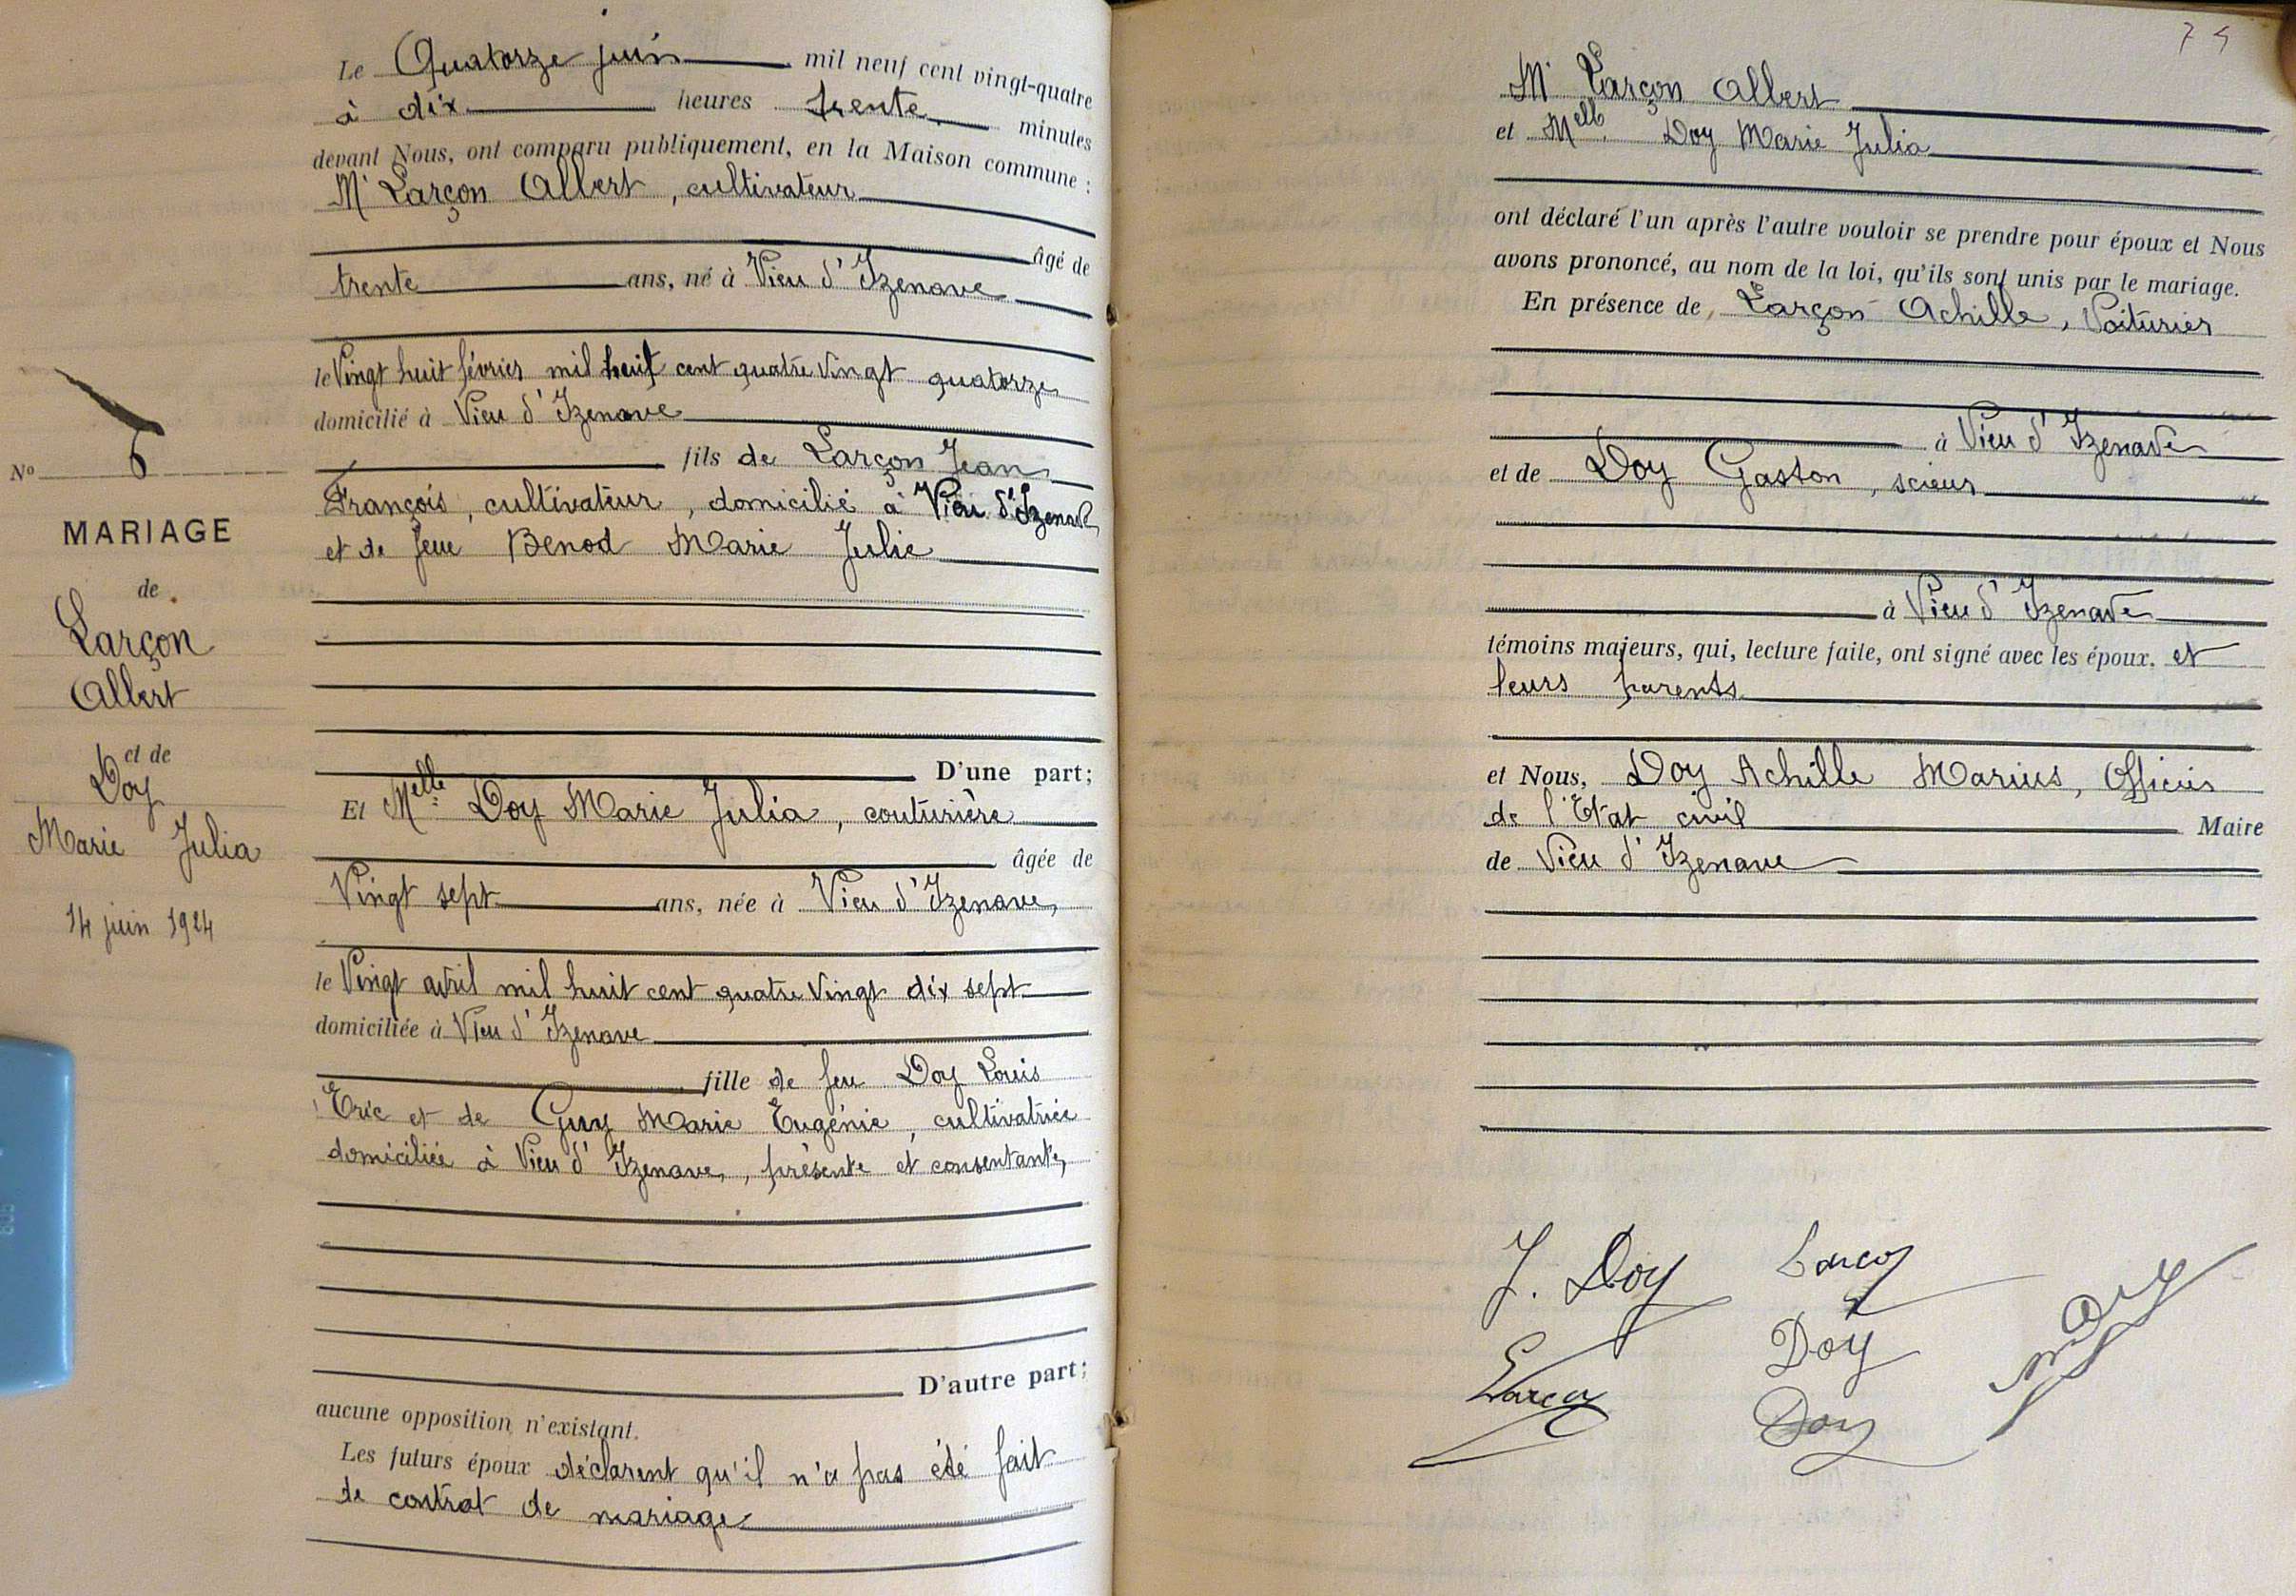 Nº 6
MARIAGE
de
Larçon
Albert
et de
Doy
Marie Julia
14 juin 1924
Le Quatorze juin mil neuf cent vingt-quatre
à dix heures trente minutes
devant Nous, ont comparu publiquement, en la Maison commune :
Mr Larçon Albert, cultivateur
âgé de
trente ans, né à Vieu d'Izenave
le Vingt huit février mil huit cent quatre vingt quatorze
domicilié à Vieu d'Izenave
fils de Larçon Jean
François, cultivateur, domicilié à Vieu d'Izenave
et de feue Benod Marie Julie
D'une part;
Et Melle Doy Marie Julia, couturière
âgée de
Vingt sept ans, née à Vieu d'Izenave,
le Vingt avril mil huit cent quatre vingt dix sept
domiciliée à Vieu d'Izenave
fille de feu Doy Louis
Eric et de Guy Marie Eugénie, cultivatrice
domiciliée à Vieu d'Izenave, présente et consentante,
D'autre part;
aucune opposition n'existant.
Les futurs époux déclarent qu'il n'a pas été fait
de contrat de mariage
Mr Larçon Albert
et Melle Doy Marie Julia
ont déclaré l'un après l'autre vouloir se prendre pour époux et Nous
avons prononcé, au nom de la loi, qu'ils sont unis par le mariage.
En présence de Larçon Achille, Voiturier
à Vieu d'Izenave
et de Doy Gaston, scieur
à Vieu d'Izenave
témoins majeurs, qui, lecture faite, ont signé avec les époux. et
leurs parents
et Nous, Doy Achille Marius, Officier
de l'Etat civil Maire
de Vieu d'Izenave
J. Doy Larçon
Doy
Larçon
Doy